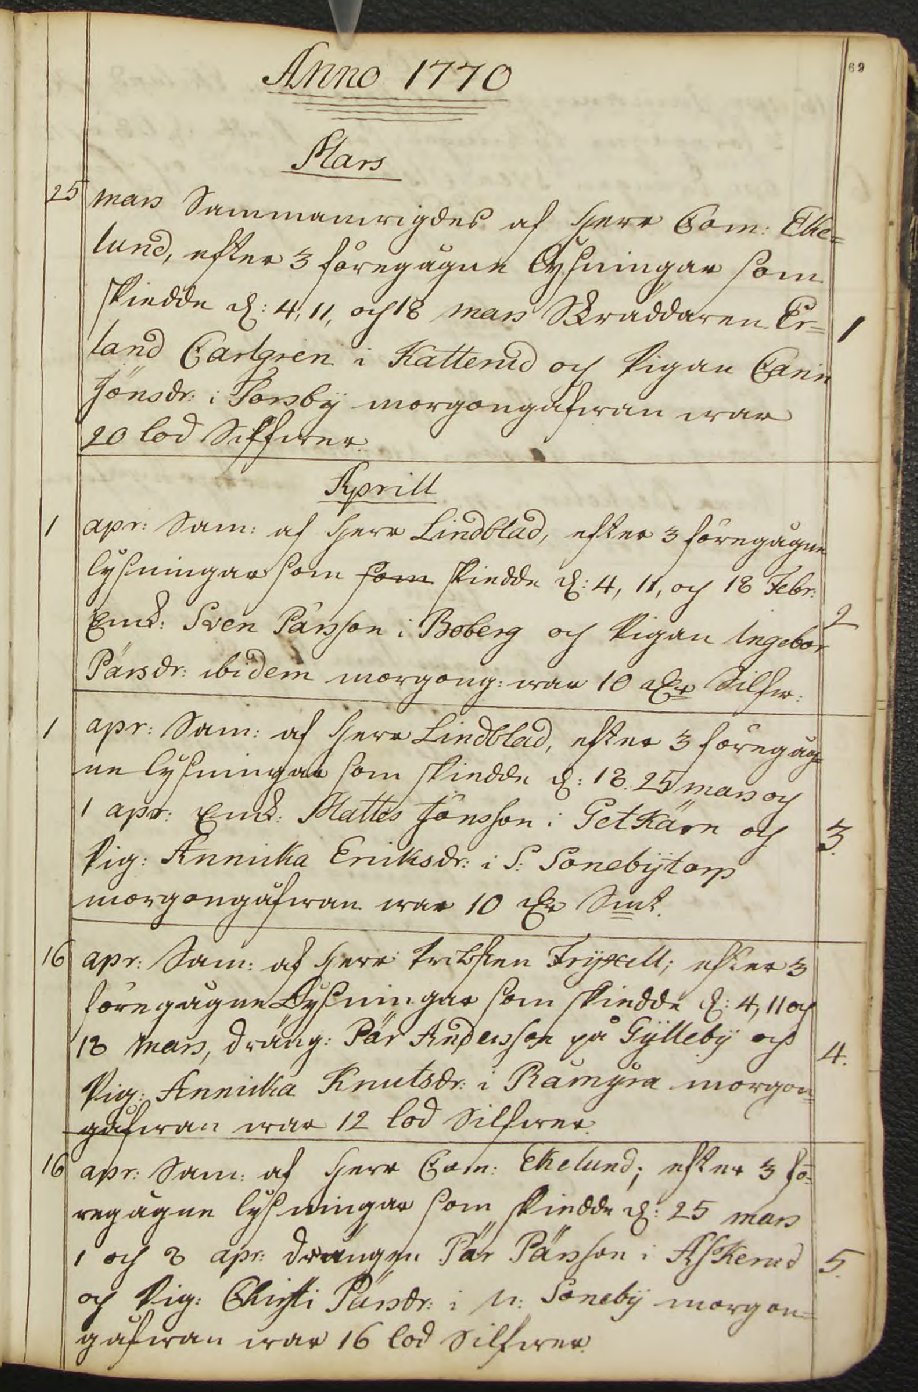 69
Anno 1770
Mars
25 mars Sammanwigdes af Herr Com: Eke=
lund, efter 3 föregågne Lysningar som
skiedde d: 4, 11, och 18 mars Skräddaren Er=
land Carlgren i Katterud och Pigan Carin 1
Jönsdr: i Torsby morgongåfwan war
20 lod Silfwer.
Aprill
1 apr: Sam: af Herr Lindblad, efter 3 föregågne
lysningar som som skiedde d: 4, 11, och 18 Febr:
Enkl: Sven Pärsson i Boberg och Pigan Ingebor 2
Pärsdr: ibidem morgong: war 10 dr Silfw:
1 apr: Sam: af Herr Lindblad, efter 3 föregåg
ne lysningar som skiedde d: 18. 25 mars och
1 apr: Enkl: Mattes Jönsson i Getkärn och 3.
Pig: Annicka Eriksdr: i S: Sonebytorp
morgongåfwan war 10 dr Smt.
16 apr: Sam: af Herr Probsten Fryxell; efter 3
föregågne Lysningar som skiedde d: 4, 11 och
18 Mars, dräng: Pär Andersson på Gylleby och 4.
Pig: Annicka Knutsdr: i Rämyra morgon=
gåfwan war 12 lod Silfwer.
16 apr: Sam: af Herr Com: Ekelund; efter 3 fö=
regågne lysningar som skiedde d: 25 mars
1 och 8 apr: drängen Pär Pärsson i Askerud 5.
och Pig: Chirsti Pärsdr: i N: Soneby morgon=
gåfwan war 16 lod Silfwer.